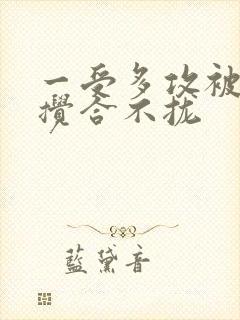 一受多攻被
攪合不拢
藍黛音